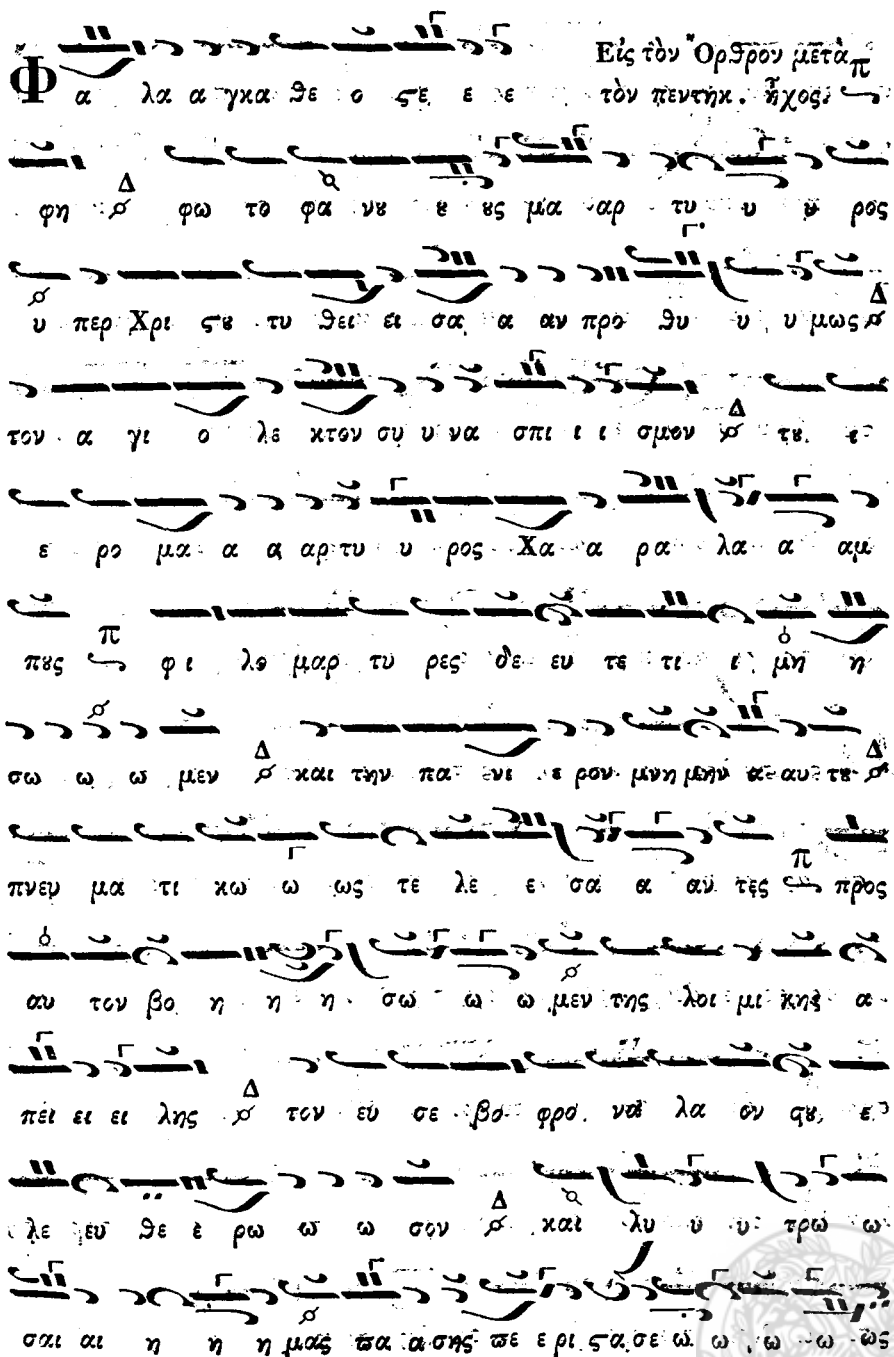 Εἰς τὸν Ὄρθρον μετὰ
τὸν πεντηκ. ἦχος π
Φ α λα α γκα θε ο ςε ε ε
φη Δ φω το φα νȣ ȣ ȣς μα αρ τυ υ υ ρος
υ περ Χρι ςȣ τυ θει ει σα α αν προ θυ υ υ μως Δ
τον α γι ο λε κτον συ υ να σπι ι ι σμον Δ τȣ ι
ε ρο μα α α αρ τυ υ ρος Χα α ρα λα α αμ
πȣς π φι λο μαρ τυ ρες δε ευ τε τι ι μη η
σω ω ω μεν Δ και την πα νι ε ρον μνη μην α αυ τȣ Δ
πνευ μα τι κω ω ως τε λε ε σα α αν τες π προς
αυ τον βο η η η σω ω ω μεν της λοι μι κης α
πει ει ει λης Δ τον ευ σε βο φρο να λα ον σȣ ε
λε ευ θε ε ρω ω ω σον Δ και λυ υ υ τρω ω
σαι αι η η η μας πα α σης πε ε ρι ςα σε ω ω ω ω ως